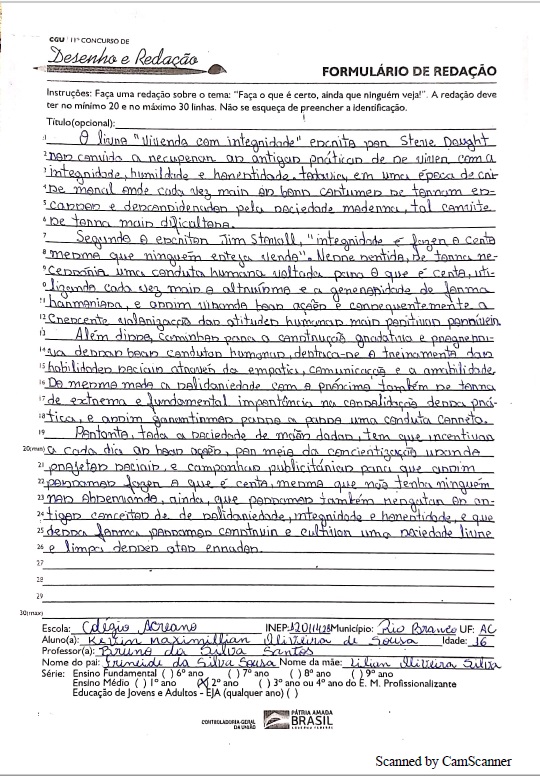 CGU 11º CONCURSO DE
Desenho e Redação
FORMULÁRIO DE REDAÇÃO
Instruções: Faça uma redação sobre o tema: "Faça o que é certo, ainda que ninguém veja!". A redação deve
ter no mínimo 20 e no máximo 30 linhas. Não se esqueça de preencher a identificação.
Título(opcional):
1 O livro "Vivendo com integridade" escrito por Steve Dought
2 nos convida a recuperar as antigas práticas de se viver com a
3 integridade, humildade e honestidade. todavia, em uma época de cri
4 se moral onde cada vez mais os bons costumes se tornam es-
5 cassos e desconsiderados pela sociedade moderna, tal convite
6 se torna mais dificultoso.
7 Segundo o escritor Jim Stovall, "integridade é fazer o certo
8 mesmo que ninguém esteja vendo". Nesse sentido, se torna ne-
9 cessário uma conduta humana voltada para o que é certo, uti-
10 lizando cada vez mais o altruísmo e a generosidade de forma
11 harmoniosa, e assim visando boas ações e consequentemente a
12 crescente valorização das atitudes humanas mais positivas possíveis
13 Além disso, caminhar para a construção gradativa e progressi-
14 va dessas boas condutas humanas, destaca-se o treinamento das
15 habilidades sociais através da empatia, comunicação e a amabilidade.
16 Do mesmo modo a solidariedade com o próximo também se torna
17 de extrema e fundamental importância na consolidação dessa prá-
18 tica, e assim garantirmos passo a passo uma conduta correta.
19 Portanto, toda a sociedade de mãos dadas, tem que incentivar
20(min) a cada dia as boas ações, por meio da concientização usando
21 projetos sociais, e campanhas publicitárias para que assim
22 possamos fazer o que é certo, mesmo que não tenha ninguém
23 nos observando, ainda, que possamos também resgatar os an-
24 tigos conceitos de de solidariedade, integridade e honestidade, e que
25 dessa forma possamos construir e cultivar uma sociedade livre
26 e limpa desses atos errados.
27
28
29
30(max)
Escola: Colégio Acreano INEP: Município: Rio Branco UF: AC
Aluno(a): Kevin Maximillian Oliveira de Sousa Idade: 16
Professor(a): Bruno da Silva Santos
Nome do pai: da Silva Sousa Nome da mãe: Lilian Oliveira Silva
Série: Ensino Fundamental ( ) 6º ano ( ) 7º ano ( ) 8º ano ( ) 9º ano
Ensino Médio ( ) 1º ano (X) 2º ano ( ) 3º ano ou 4º ano do E. M. Profissionalizante
Educação de Jovens e Adultos - EJA (qualquer ano) ( )
CONTROLADORIA-GERAL
DA UNIÃO
PÁTRIA AMADA
BRASIL
GOVERNO FEDERAL
Scanned by CamScanner